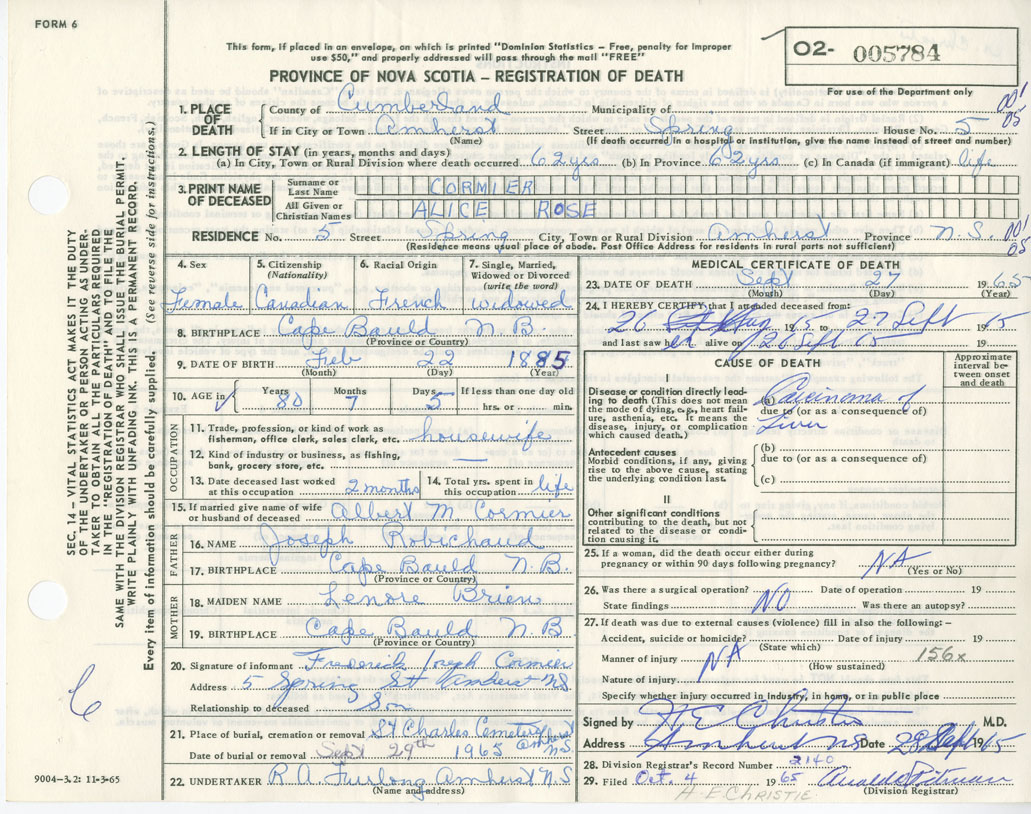 FORM 6
This form, if placed in an envelope, on which is printed "Dominion Statistics – Free, penalty for improper
use $50," and properly addressed will pass through the mail "FREE"
O2- 005784
For use of the Department only
PROVINCE OF NOVA SCOTIA – REGISTRATION OF DEATH
001
05
1. PLACE OF DEATH County of Cumberland Municipality of
If in City or Town Amherst Street Spring House No. 5
(Name) (If death occurred in a hospital or institution, give the name instead of street and number)
2. LENGTH OF STAY (in years, months and days)
(a) In City, Town or Rural Division where death occurred 62 yrs (b) In Province 62 yrs (c) In Canada (if immigrant) life
3. PRINT NAME OF DECEASED Surname or Last Name CORMIER
All Given or Christian Names ALICE ROSE
RESIDENCE No. 5 Street Spring City, Town or Rural Division Amherst Province N.S. 001
05
(Residence means usual place of abode. Post Office Address for residents in rural parts not sufficient)
4. Sex 5. Citizenship (Nationality) 6. Racial Origin 7. Single, Married, Widowed or Divorced (write the word)
Female Canadian French widowed
8. BIRTHPLACE Cape Bauld N.B.
(Province or Country)
9. DATE OF BIRTH Feb 22 1885
(Month) (Day) (Year)
10. AGE in Years 80 Months 7 Days 5 If less than one day old
hrs. or min.
OCCUPATION
11. Trade, profession, or kind of work as
fisherman, office clerk, sales clerk, etc. housewife
12. Kind of industry or business, as fishing,
bank, grocery store, etc. —
13. Date deceased last worked at this occupation 2 months 14. Total yrs. spent in this occupation life
15. If married give name of wife
or husband of deceased Albert M Cormier
FATHER
16. NAME Joseph Robichaud
17. BIRTHPLACE Cape Bauld N.B.
(Province or Country)
MOTHER
18. MAIDEN NAME Lenore Brien
19. BIRTHPLACE Cape Bauld N.B
(Province or Country)
20. Signature of informant Frederick Joseph Cormier
Address 5 Spring St Amherst N.S.
Relationship to deceased Son
21. Place of burial, cremation or removal St Charles Cemetery Amherst N.S.
Date of burial or removal Sept 29th 1965
22. UNDERTAKER R.A. Furlong Amherst N.S
(Name and address)
MEDICAL CERTIFICATE OF DEATH
23. DATE OF DEATH Sept 27 1965
(Month) (Day) (Year)
24. I HEREBY CERTIFY that I attended deceased from:
26 Aug 1965 to 27 Sept 1965
and last saw her alive on 26 Sept 65 19
CAUSE OF DEATH
Approximate interval between onset and death
I
Disease or condition directly leading to death (This does not mean
the mode of dying, e.g., heart failure, asthenia, etc. It means the
disease, injury, or complication
which caused death.)
(a) Carcinoma of
due to (or as a consequence of)
Liver
Antecedent causes
Morbid conditions, if any, giving
rise to the above cause, stating
the underlying condition last.
(b)
due to (or as a consequence of)
(c)
II
Other significant conditions
contributing to the death, but not
related to the disease or condition causing it.
25. If a woman, did the death occur either during
pregnancy or within 90 days following pregnancy? NA
(Yes or No)
26. Was there a surgical operation? NO Date of operation 19
State findings Was there an autopsy?
27. If death was due to external causes (violence) fill in also the following: –
Accident, suicide or homicide? Date of injury 19
(State which)
Manner of injury NA 156x
(How sustained)
Nature of injury
Specify whether injury occurred in industry, in home, or in public place
Signed by H E Christie M.D.
Address Amherst NS Date 28 Sept 1965
28. Division Registrar's Record Number 2140
29. Filed Oct. 4 1965
(Division Registrar)
H.E. CHRISTIE
SEC. 14 – VITAL STATISTICS ACT MAKES IT THE DUTY
OF THE UNDERTAKER OR PERSON ACTING AS UNDERTAKER TO OBTAIN ALL THE PARTICULARS REQUIRED
IN THE "REGISTRATION OF DEATH" AND TO FILE THE
SAME WITH THE DIVISION REGISTRAR WHO SHALL ISSUE THE BURIAL PERMIT.
WRITE PLAINLY WITH UNFADING INK. THIS IS A PERMANENT RECORD.
Every item of information should be carefully supplied. (See reverse side for instructions.)
9004-3.2: 11-3-65